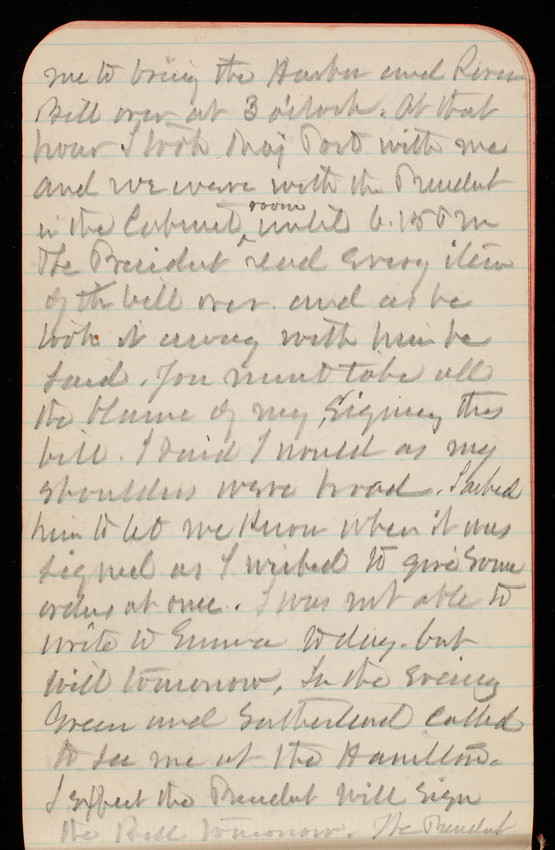 me to bring the Harbor and River
Bill over at 3 o'clock. At that
hour I took Maj Post with me
and we were with the President
in the Cabinet room until 6.15 P m
The President read every item
of the bill over. and as he
took it away with him he
said. You must take all
the blame of my signing this
bill. I said I would as my
shoulders were broad. I asked
him to let me know when it was
signed as I wished to give some
orders at once. I was not able to
write to Emma today. but
will tomorrow. In the evening
Green and Sutherland called
to see me at the Hamilton.
I expect the President will sign
the Bill tomorrow. The President